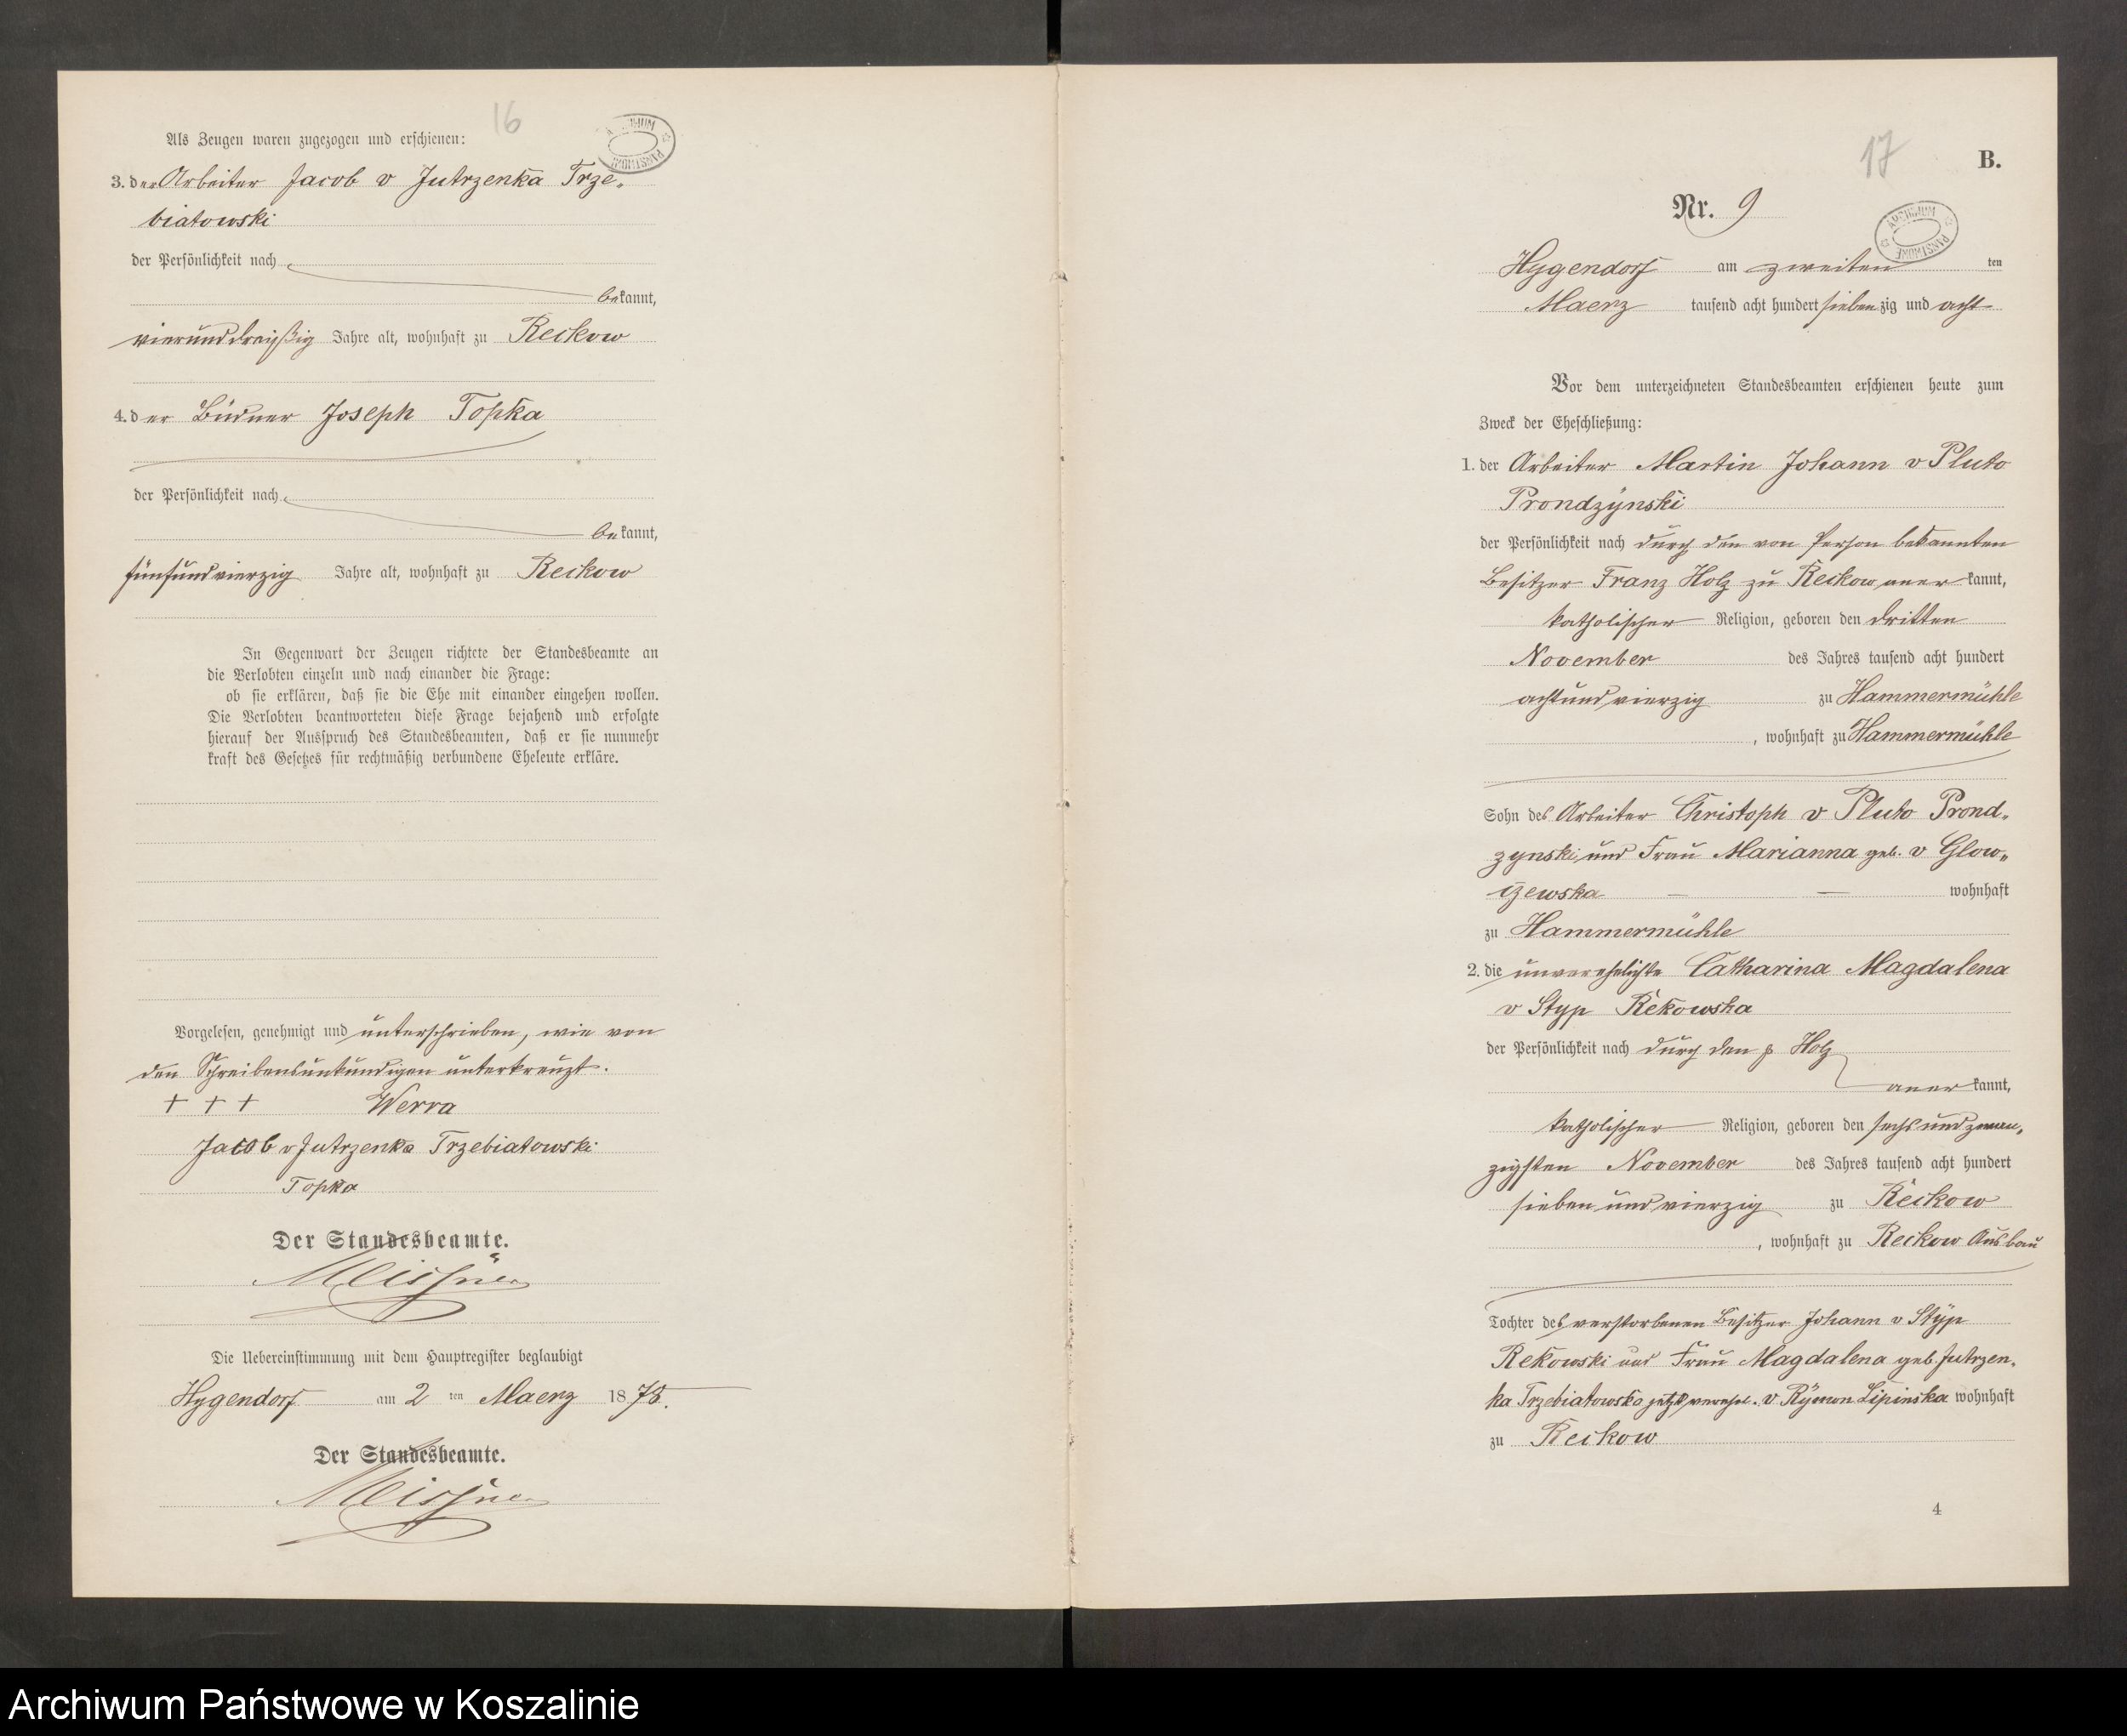 16
Als Zeugen waren zugezogen und erschienen:
3. der Arbeiter Jacob v Jutrzenka Trze-
biatowski
der Persönlichkeit nach
bekannt,
vierunddreißig Jahre alt, wohnhaft zu Reckow
4. der Büdner Joseph Topka
der Persönlichkeit nach
bekannt,
fünfundvierzig Jahre alt, wohnhaft zu Reckow
In Gegenwart der Zeugen richtete der Standesbeamte an
die Verlobten einzeln und nach einander die Frage:
ob sie erklären, daß sie die Ehe mit einander eingehen wollen.
Die Verlobten beantworteten diese Frage bejahend und erfolgte
hierauf der Ausspruch des Standesbeamten, daß er sie nunmehr
kraft des Gesetzes für rechtmäßig verbundene Eheleute erkläre.
Vorgelesen, genehmigt und unterschrieben, wie von
den Schreibensunkundigen unterkreuzt.
+ + + Werra
Jacob v Jutrzenka Trzebiatowski
Topka
Der Standesbeamte.
Meissner
Die Uebereinstimmung mit dem Hauptregister beglaubigt
Hygendorf am 2 ten Maerz 1878.
Der Standesbeamte.
Meissner
17
B.
Nr. 9
ARCHIWUM PAŃSTWOWE
Hygendorf am zweiten ten
Maerz tausend acht hundert siebenzig und acht
Vor dem unterzeichneten Standesbeamten erschienen heute zum
Zweck der Eheschließung:
1. der Arbeiter Martin Johann v Pluto
Prondzynski
der Persönlichkeit nach durch den von Person bekannten
Besitzer Franz Holz zu Reckow anerkannt,
katholischer Religion, geboren den dritten
November des Jahres tausend acht hundert
achtundvierzig zu Hammermühle
, wohnhaft zu Hammermühle
Sohn des Arbeiter Christoph v Pluto Prond-
zynski und Frau Marianna geb. v Glow-
czewska wohnhaft
zu Hammermühle
2. die unverehelichte Catharina Magdalena
v Styp Rekowska
der Persönlichkeit nach durch den p Holz
anerkannt,
katholischer Religion, geboren den sechsundzwan-
zigsten November des Jahres tausend acht hundert
siebenundvierzig zu Reckow
, wohnhaft zu Reckow Ausbau
Tochter des verstorbenen Besitzer Johann v Styp
Rekowski und Frau Magdalena geb. Jutrzen-
ka Trzebiatowska jetzt verehel. v Rymon Lipinska wohnhaft
zu Reckow
4
Archiwum Państwowe w Koszalinie